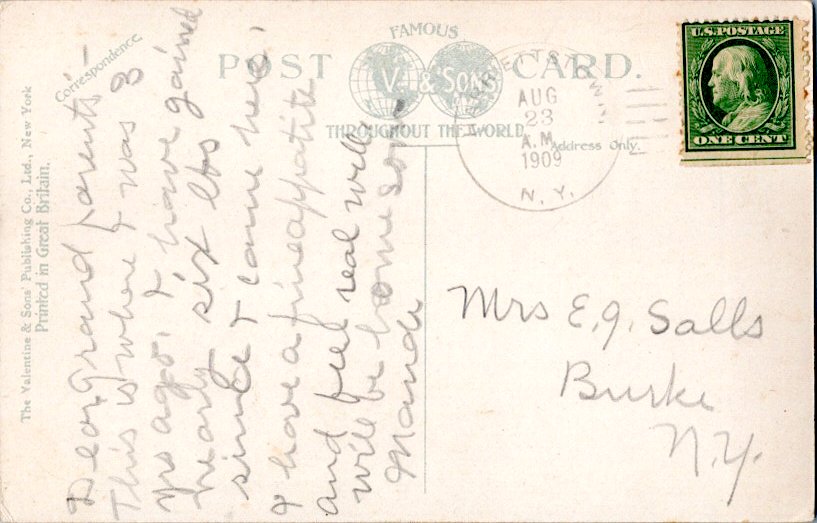 FAMOUS
POST CARD.
V. & SONS
THROUGHOUT THE WORLD.
Correspondence.
Address Only.
The Valentine & Sons' Publishing Co., Ltd., New York
Printed in Great Britain.
U.S. POSTAGE
ONE CENT
AUG
23
A.M.
1909
N.Y.
Dear Grand parents:-
This is where I was 3
yrs ago. I have gained
nearly six lbs
since I came here.
I have a fine appatite
and feel real well
will be home soon-
Maude
Mrs E.J. Salls
Burke
N.Y.